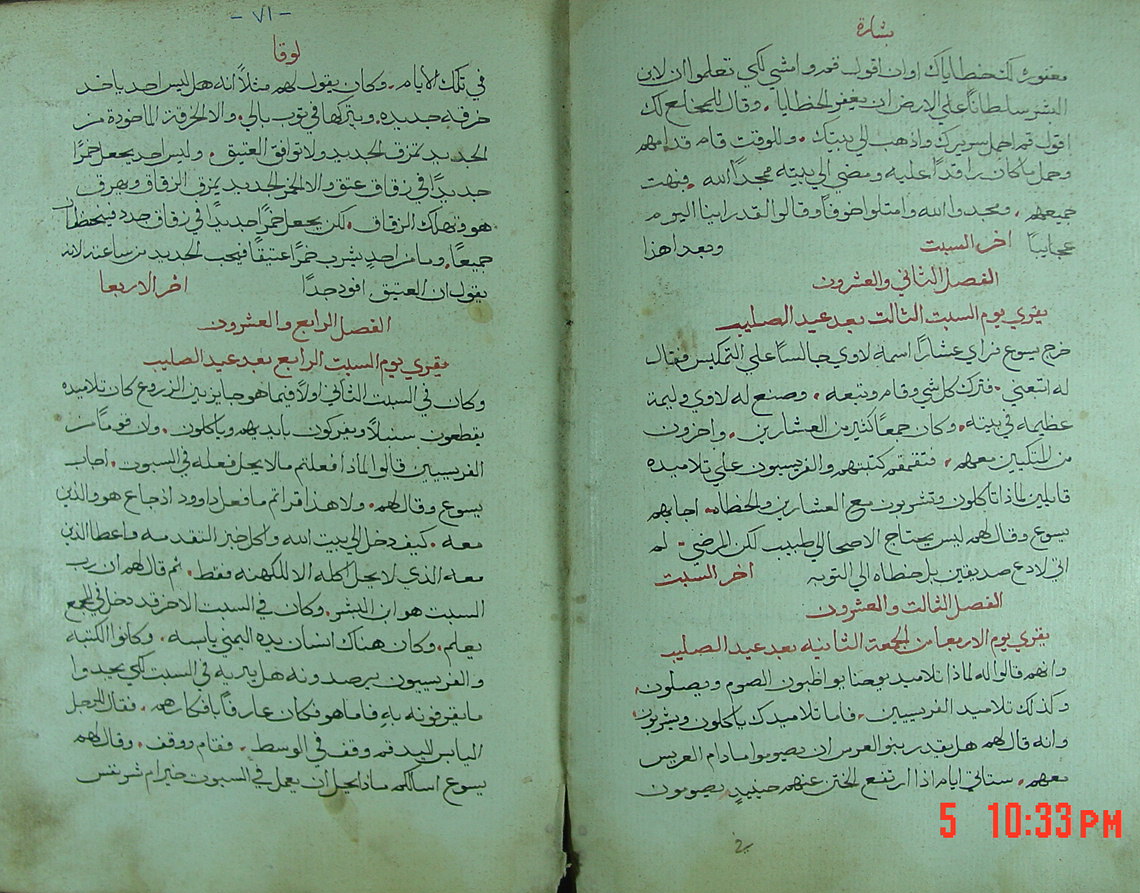 بشارة
مغفورة لك خطاياك او ان اقول قم و امشي لكي تعلموا ان لابن
البشر سلطاناً على الارض ان يغفر الخطايا . وقال للمخلع لك
اقول قم احمل سريرك واذهب الى بيتك . وللوقت قام قدامهم
وحمل ما كان راقداً عليه ومضى الى بيته ممجداً الله . فبهت
جميعهم . ومجدوا الله وامتلوا خوفاً وقالوا لقد راينا اليوم
عجايباً اخر السبت وبعد هذا
الفصل الثاني والعشرون
يقري يوم السبت الثالث بعد عيد الصليب
خرج يسوع فراي عشاراً اسمه لاوي جالساً علي التمكيس فقال
له اتبعني . فترك كل شي وقام وتبعه . وصنع له لاوي وليمة
عظيمه في بيته . وكان جمعاً كثير من العشارين . واخرون
من المتكيين معهم . فتقمقم كتبتهم والفريسيون علي تلاميده
قايلين لماذا تاكلون وتشربون مع العشارين والخطاه . اجابهم
يسوع وقال لهم ليس يحتاج الاصحا الي طبيب لكن المرضي . لم
اتي لادع صديقين بل خطاه الي التوبه اخر السبت
الفصل الثالث والعشرون
يقري يوم الاربعا من الجمعة الثانيه بعد عيد الصليب
وانهم قالوا له لماذا تلاميد يوحنا يواظبون الصوم ويصلون .
وكذلك تلاميد الفريسيين . فاما تلاميدك ياكلون ويشربون .
وانه قال لهم هل يقدر بنو العرس ان يصوموا مادام العريس
معهم . ستاتي ايام اذا ارتفع الختن عنهم حينيدٍ يصومون
5 10:33PM
- ٧١ -
لوقا
في تلك الايام . وكان يقول لهم مثلاً انه هل ليس احد ياخد
خرقه جديده . ويتركها في توب بالي . والا الخرقة الماخودة من
الجديد تمزق الجديد ولا توافق العتيق . وليس احد يجعل خمرًا
جديداً في زقاق عتق والا الخمر الجديد يمزق الزقاق ويهرق
هو وتهلك الزقاق . لكن يجعل خمراً جديداً في زقاق جدد فيحفظان
جميعاً . وما من احدٍ يشرب خمراً عتيقاً فيحب الجديد من ساعته لانه
يقول ان العتيق اقود جداً اخر الاربعا
الفصل الرابع والعشرون
يقري يوم السبت الرابع بعد عيد الصليب
وكان في السبت الثاني اولاً فيما هو جايز بين الزروع كان تلاميده
يقطعون سنبلاً ويفركون بايديهم وياكلون . وان قوماً من
الفريسيين قالوا لماذا فعلتم ما لا يحل فعله في السبوت . اجاب
يسوع وقال لهم . ولا هذا قراتم ما فعل داوود اذ جاع هو والذين
معه . كيف دخل الي بيت الله واكل خبز التقدمه واعطا الذين
معه الذي لا يحل اكله الا للكهنه فقط . ثم قال لهم ان رب
السبت هو ابن البشر . وكان في السبت الاخر قد دخل في المجمع
يعلم . وكان هناك انسان يده اليمني يابسه . وكانوا الكتبه
والفريسيون يرصدونه هل يبريه في السبت لكي يجدوا
ما يقرفونه به . فاما هو فكان عارفاً بافكارهم . فقال للرجل
اليابس اليد قم وقف في الوسط . فقام ووقف . وقال لهم
يسوع اسالكم ماذا يحل ان يعمل في السبوت خير ام شر نفس